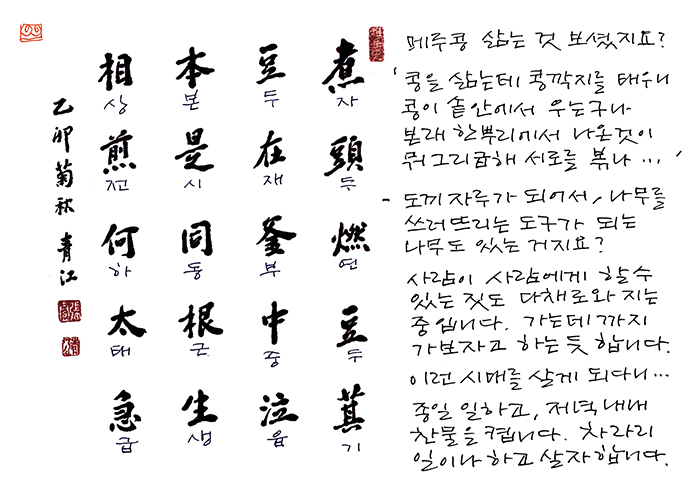 煮頭燃豆萁
자두연두기
豆在釜中泣
두재부중읍
本是同根生
본시동근생
相煎何太急
상전하태급
乙卯菊秋 青江
메루콩 삶는 것 보셨지요?
‘콩을 삶는데 콩깍지를 태우니
콩이 솥안에서 우는구나
본래 한뿌리에서 나온것이
뭐그리급해 서로를 볶나 …’
- 도끼자루가 되어서, 나무를
쓰러뜨리는 도구가 되는
나무도 있는 거지요?
사람이 사람에게 할수
있는 짓도 다채로와 지는
중입니다. 가는데 까지
가보자고 하는듯 합니다.
이런 시대를 살게 되다니…
종일 일하고, 저녁내내
찬물을 켭니다. 차라리
일이나 하고 살자합니다.